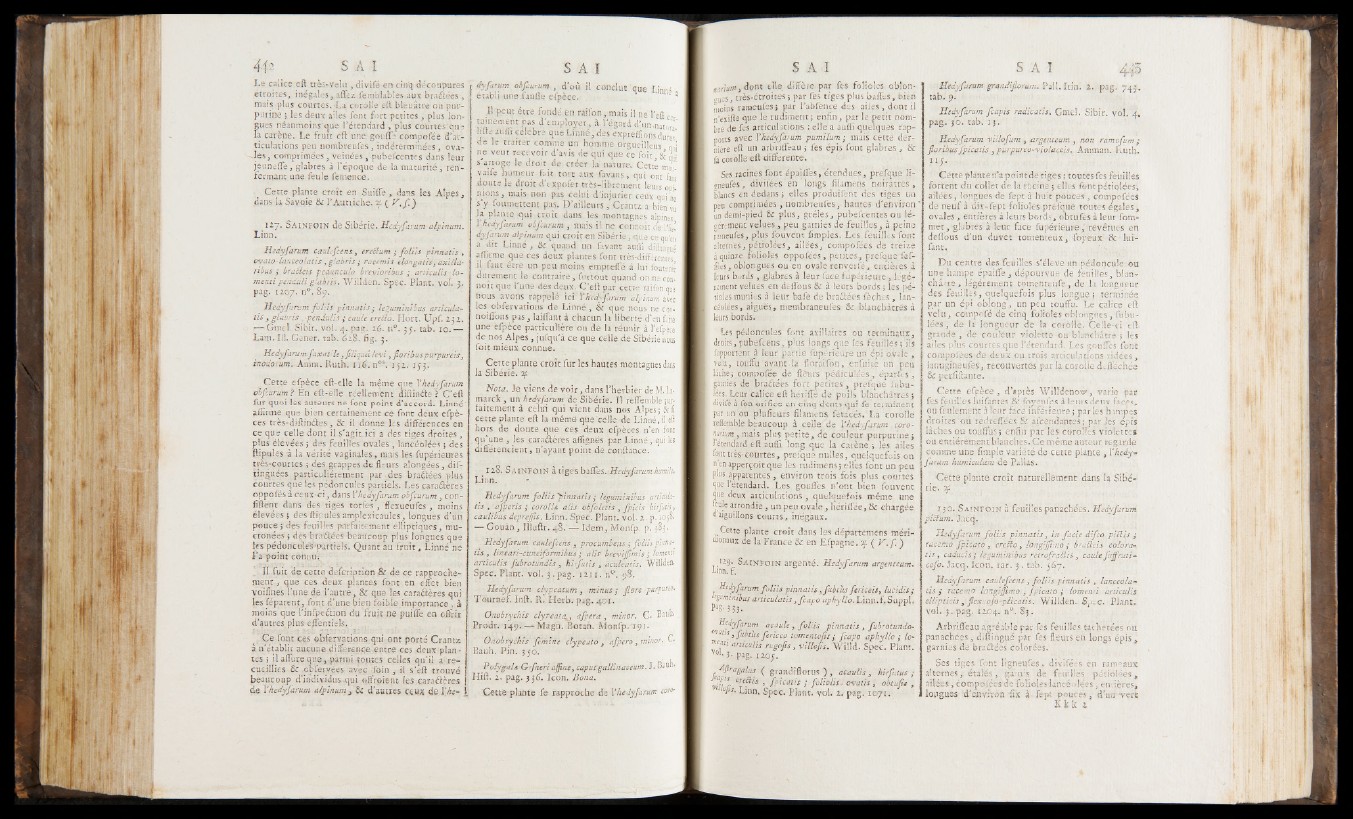 442 S A I
Le calice est très-velu, divisé en cinq découpures
étroites, inégales, assez semblables aux bractées,
mais plus courtes. La corolle est bleuâtre ou pur-
purine ; les deux ailes sont fort petites, plus lon-
gues néanmoins que l'étendard, plus courtes que
la carène. Le fruit est une gousse composée d'ar-
ticulations peu nombreuses, indéterminées, ova-
les, comprimées, veinées, pubescentes dans leur
jeunesse, glabres à l'époque de la maturité, ren-
fermant une seule semence.
Cette plante croît en Suisse, dans les Alpes,
dans la Savoie & l'Autriche. ♃ ( V. s. )
127. SAINFOIN de Sibérie. Hedysarum alpinum.
Linn.
Hedysarum caulescens, erectum ; foliis pinnatis,
ovato-lanceolatis, glabris ; racemis elongatis, axilla-
ribus ; bracteis pedunculo brevioribus ; articulis lo-
menti glabris. Willden. Spec. Plant. vol. 3.
pag. 1207. n°. 89.
Hedysarum foliis pinnatis ; leguminibus articula-
tis, glabris, pendulis ; caule erecto. Hort. Ups. 232.
— Gmel. Sibir. vol. 4. pag. 26. n°. 35. tab. 10. —
Lam. Ill. Gener. tab. 628. fig. 3.
Hedysarum saxatile, siliquâ levi, floribus purpureis,
inodorum. Amm. Ruth. 116. nos. 152. 153.
Cette espèce est-elle la même que l'hedysarum
obscurum ? En est-elle réellement distincte ? C'est
sur quoi les auteurs ne sont point d'accord. Linné
affirme que bien certainement ce sont deux espè-
ces très-distinctes, & il donne les différences en
ce que celle dont il s'agit ici a des tiges droites,
plus élevées ; des feuilles ovales, lancéolées ; des
stipules à la vérité vaginales, mais les supérieures
très-courtes ; des grappes de fleurs alongées, dis-
tinguées particuliérement par des bractées plus
courtes que les pédoncules partiels. Les caractères
opposés à ceux-ci, dans l'hedysarum obscurum, con-
sistent dans des tiges tortes, flexueuses, moins
élevées ; des stipules amplexicaules, longues d'un
pouce ; des feuilles parfaitement elliptiques, mu-
cronées ; des bractées beaucoup plus longues que
les pédoncules partiels. Quant au fruit, Linné ne
l'a point connu.
Il suit de cette description & de ce rapproche-
ment, que ces deux plantes sont en effet bien
voisines l'une de l'autre, & que les caractères qui
les séparent, sont d'une bien foible importance, à
moins que l'inspection du fruit ne puisse en offrir
d'autres plus essentiels.
Ce sont ces observations qui ont porté Crantz
à n'établir aucune différence entre ces deux plan-
tes ; il assure que, parmi toutes celles qu'il a re-
cueillies & observées avec soin, il s'est trouvé
beaucoup d'individus qui offroient les caractères
de l'hedysarum alpinum, & d'autres ceux de l'he-
S A I
dysarum obscurum, d'où il conclut que Linné a
établi une fausse espèce.
Il peut être fondé en raison, mais il ne l'est cer-
tainement pas d'employer, à l'égard d'un natura-
liste aussi célèbre que Linné, des expressions dures,
de le traiter comme un homme orgueilleux, qui
ne veut recevoir d'avis de qui que ce soit, & qui
s'arroge le droit de créer la nature. Cette mau-
vaise humeur fait tort aux savans, qui ont sans
doute le droit d'exposer très-librement leurs opi-
nions, mais non pas celui d'injurier ceux qui ne
s'y soumettent pas. D'ailleurs, Crantz a bien vu
la plante qui croît dans les montagnes alpines,
l'hedysarum obscurum, mais il ne connoît
l'hedysarum alpinum qui croît en Sibérie,
a dit Linné, & quand un savant aussi distingué
affirme que ces deux plantes sont très-différentes,
il faut être un peu moins empressé à lui soutenir
durement le contraire, surtout quand on ne con-
noît que l'une des deux. C'est par cette raison que
nous avons rappelé ici l'hedysarum alpinum avec
les observations de Linné, & que nous ne con-
noissons pas, laissant à chacun la liberté d'en faire
une espèce particulière ou de la réunir à l'espèce
de nos Alpes, jusqu'à ce que celle de Sibérie nous
soit mieux connue.
Cette plante croît sur les hautes montagnes dans
la Sibérie. ♃
Nota. Je viens de voir, dans l'herbier de M. la-
marck, un hedysarum de Sibérie. Il ressemble par-
faitement à celui qui vient dans nos Alpes ; & si
cette plante est la même que celle de Linné, il est
hors de doute que ces deux espèces n'en font
qu'une, les caractères assignés par Linné, qui les
différencient, n'ayant point de constance.
128. SAINFOIN à tiges basses. Hedysarum humile.
Linn.
Hedysarum foliis pinnatis ; leguminibus articula-
tis, asperis ; corollæ alis obsoletis, spicis hirsutis,
caulibus depressis. Linn. Spec. Plant. vol. 2. p. 1058.
— Gouan, Illustr. 48. — Idem, Monsp. p. 383.
Hedysarum caulescens, procumbens ; foliis pinna-
tis, lineari-cuneiformibus ; alis brevissimis ; lomenti
articulis subrotundis, hirsutis, aculeatis. Willden.
Spec. Plant. vol. 3. pag. 1211. n°. 98.
Hedysarum clypeatum, minus ; flore purpureo.
Tournef. Inst. R. Herb. pag. 401.
Onobrychis clypeata, aspera, minor. C. Bauh.
Prodr. 149. — Magn. Botan. Monsp. 191.
Onobrychis semine clypeato, aspero, minor. C.
Bauh. Pin. 350.
Polygala Gesneri affinæ, caput gallinaceum. J. Bauh.
Hist. 2. pag. 336. Icon. Bona.
Cette plante se rapproche de l'hedysarum coro-
S A I
narium, dont elle diffère par ses folioles oblon-
gues, très-étroites ; par ses tiges plus basses, bien
moins rameuses ; par l'absence des ailes, dont il
n'existe que le rudiment ; enfin, par le petit nom-
bre de ses articulations : elle a aussi quelques rap-
ports avec l'hedysarum pumilum ; mais cette der-
nière est un arbrisseau ; ses épis sont glabres, &
sa corolle est différente.
Ses racines sont épaisses, étendues, presque li-
gneuses, divisées en longs filamens noirâtres,
blancs en dedans ; elles produisent des tiges un
peu comprimées, nombreuses, hautes d'environ
un demi-pied & plus, grêles, pubescentes ou lé-
gérement velues, peu garnies de feuilles, à peine
rameuses, plus souvent simples. Les feuilles sont
alternes, pétiolées, ailées, composées de treize
à quinze folioles opposées, petites, presque ses-
siles, oblongues ou en ovale renversé, entières à
leurs bords, glabres à leur face supérieure, légé-
rement velues en dessous & à leurs bords ; les pé-
tioles munis à leur base de bractées sèches, lan-
céolées, aiguës, membraneuses & blanchâtres à
leurs bords.
Les pédoncules sont axillaires ou terminaux,
droits, pubescens, plus longs que les feuilles ; ils
supportent à leur partie supérieure un épi ovale,
velu, touffu avant la floraison, ensuite un peu
lâche, composée de fleurs pédiculées, éparses,
garnies de bractées fort petites, presque subu-
lées. Leur calice est hérissé de poils blanchâtres ;
divisé à son orifice en cinq dents qui se terminent
par un ou plusieurs filamens sétacés. La corolle
ressemble beaucoup à celle de l'hedysarum coro-
narium, mais plus petite, de couleur purpurine ;
l'étendard est aussi long que la carène ; les ailes
sont très-courtes, presque nulles, quelquefois on
n'en apperçoit que les rudimens ; elles sont un peu
plus apparentes, environ trois fois plus courtes
que l'étendard. Les gousses n'ont bien souvent
que deux articulations, quelquefois même une
seule arrondie, un peu ovale, hérissée, & chargée
d'aiguillons courts, inégaux.
Cette plante croît dans les départemens méri-
dionaux de la France & en Espagne. ♃ ( V. s. )
129. SAINFOIN argenté. Hedysarum argenteum.
Linn. f.
Hedysarum foliis pinnatis, subtùs sericeis, lucidis ;
leguminibus articulatis, scapo aphyllo. Linn. f. Suppl.
pag. 333.
Hedysarum acaule, foliis pinnatis, subrotundo-
ovatis, subtùs sericeo tomentosis ; scapo aphyllo ; lo-
menti articulis rugosis, villosis. Willd. Spec. Plant.
vol. 3. pag. 1205.
Astragalus ( grandiflorus ), acaulis, hirsutus ;
scapis erectis, spicatis ; foliolis ovatis, obtusis,
villosis. Linn. Spec. Plant. vol. 2. pag. 1071.
S A I 443
Hedysarum grandiflorum. Pall. Itin. 2. pag. 743.
tab. 9.
Hedysarum scapis radicatis. Gmel. Sibir. vol. 4.
pag. 30. tab. 13.
Hedysarum villosum, argenteum, non ramosum ;
floribus spicatis, purpureo-violaceis. Amman. Ruth.
115.
Cette plante n'a point de tiges : toutes ses feuilles
sortent du collet de la racine ; elles sont pétiolées,
ailées, longues de sept à huit pouces, composées
de neuf à dix-sept folioles presque toutes égales,
ovales, entières à leurs bords, obtuses à leur som-
met, glabres à leur face supérieure, revêtues en
dessous d'un duvet tomenteux, soyeux & lui-
sant.
Du centre des feuilles s'élève un pédoncule ou
une hampe épaisse, dépourvue de feuilles, blan-
châtre, légérement tomenteuse, de la longueur
des feuilles, quelquefois plus longue ; terminée
par un épi oblong, un peu touffu. Le calice est
velu, composé de cinq folioles oblongues, subu-
lées, de la longueur de la corolle. Celle-ci est
grande, de couleur violette ou blanchâtre ; les
ailes plus courtes que l'étendard. Les gousses sont
composées de deux ou trois articulations ridées,
lanugineuses, recouvertes par la corolle desséchée
& persistante.
Cette espèce, d'après Willdenow, varie par
ses feuilles luisantes & soyeuses à leurs deux faces,
ou seulement à leur face inférieure ; par les hampes
droites ou redressées & ascendantes ; par les épis
lâches ou touffus ; enfin par les corolles violettes
ou entiérement blanches. Ce même auteur regarde
comme une simple variété de cette plante, l'hedy-
sarum humiculum de Pallas.
Cette plante croît naturellement dans la Sibé-
rie. ♃
130. SAINFOIN à feuilles panachées. Hedysarum
pictum. Jacq.
Hedysarum foliis pinnatis, in facie disco pictis ;
racemo spicato, erecto, longissimo ; bracteis colora-
tis, caducis ; leguminibus retrofractis, caule suffruti-
coso. Jacq. Icon. rar. 3. tab. 567.
Hedysarum caulescens, foliis pinnatis, lanceola-
tis ; racemo longissimo, spicato ; lomenti articulis
ellipticis, flexuoso-plicatis. Willden. Spec. Plant.
vol. 3. pag. 1204. n°. 83.
Arbrisseau agréable par ses feuilles tachetées ou
panachées, distingué par ses fleurs en longs épis,
garnies de bractées colorées.
Ses tiges sont ligneuses, divisées en rameaux
alternes, étalés, garnis de feuilles pétiolées,
ailées, composées de folioles lancéolées, entières,
longues d'environ six à sept pouces, d'un vert
K k k 2